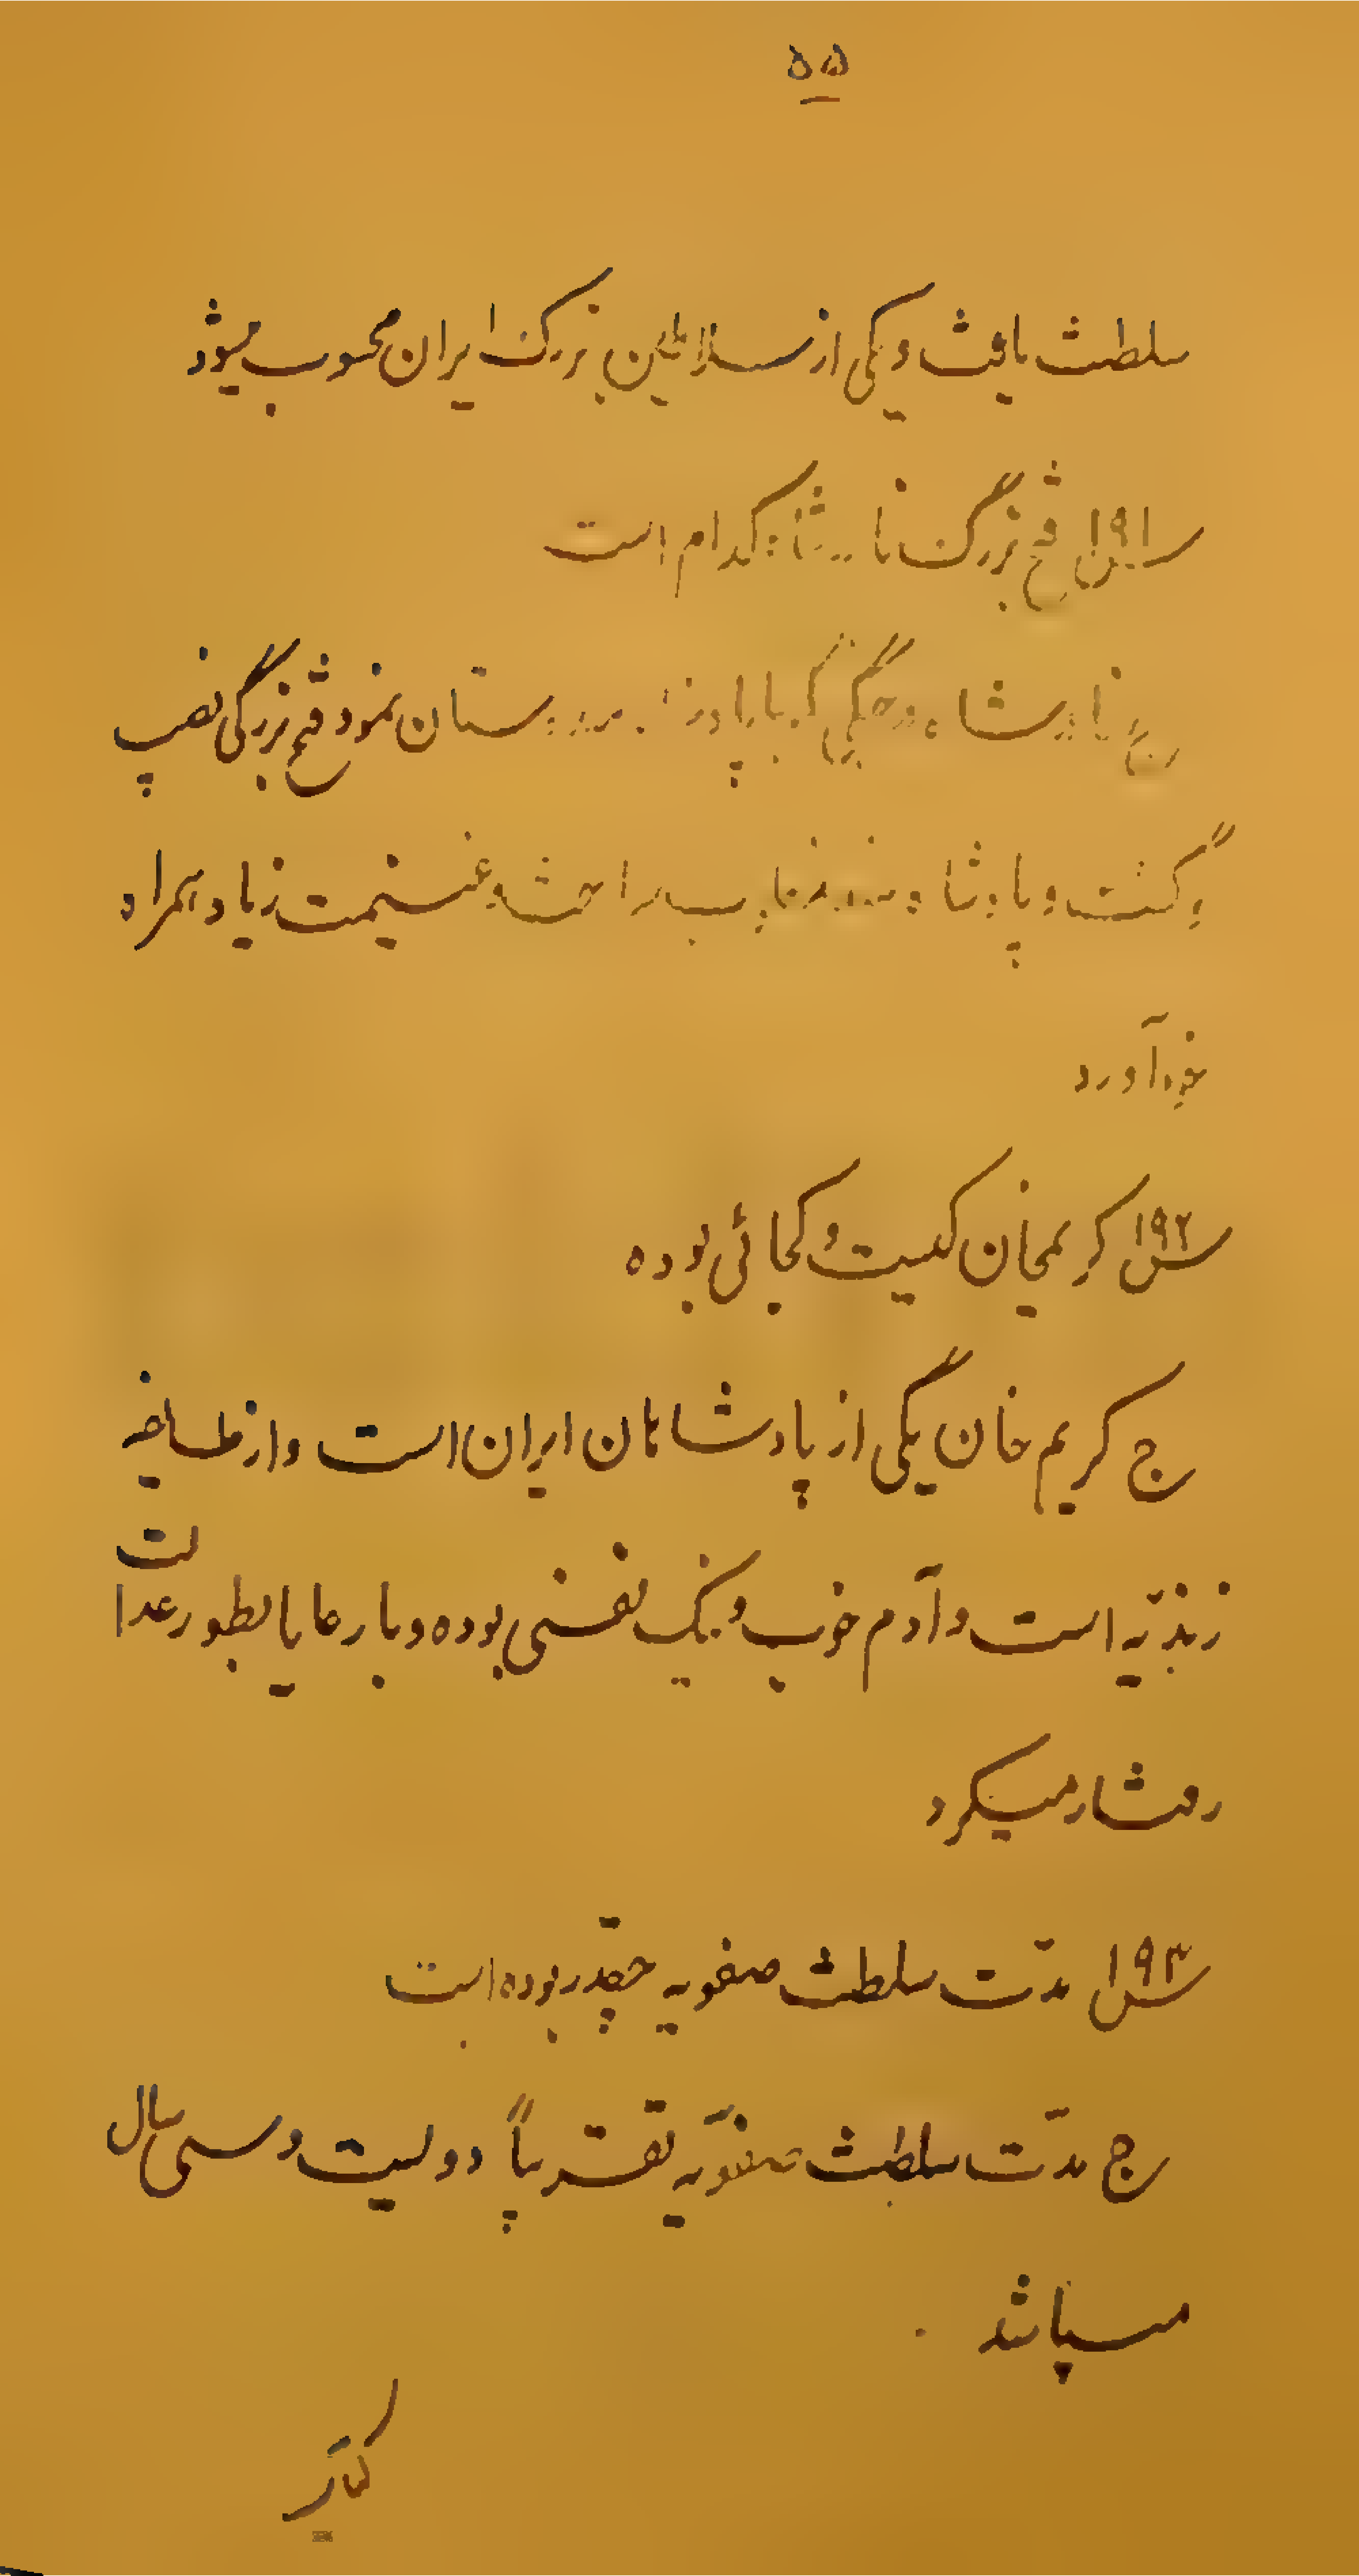 ۵۵
سلطنت یافت و یکی از سلاطین بزرگ ایران محسوب میشود
س ۱۹۱ فتح بزرگ نادرشاه کدام است
ج نادرشاه در جنگی که با پادشاه هندوستان نمود فتح بزرگی نصیب
او گشت و پادشاه را و غنیمت زیاد همراه
خود آورد
س ۱۹۲ کریمخان کیست و کجائی بوده
ج کریم خان یکی از پادشاهان ایران است و از طایفه
زندیّه است و آدم خوب و نیک نفسی بوده و با رعایا بطور عدالت
رفتار میکرد
س ۱۹۳ مدّت سلطنت صفویه چقدر بوده است
ج مدّت سلطنت صفویّه تقریباً دویست و سی سال
میباشد